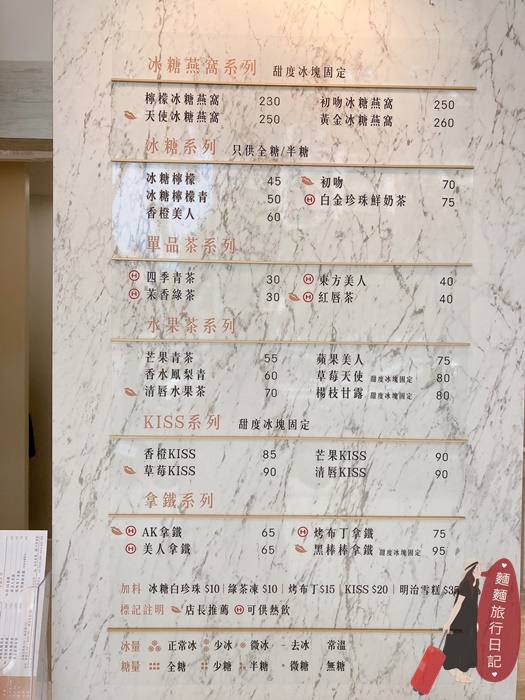 冰糖燕窩系列 甜度冰塊固定
檸檬冰糖燕窩 230 初吻冰糖燕窩 250
天使冰糖燕窩 250 黃金冰糖燕窩 260
冰糖系列 只供全糖/半糖
冰糖檸檬 45 初吻 70
冰糖檸檬青 50 H 白金珍珠鮮奶茶 75
香橙美人 60
單品茶系列
H 四季青茶 30 H 東方美人 40
H 茉香綠茶 30 H 紅唇茶 40
水果茶系列
芒果青茶 55 蘋果美人 75
香水鳳梨青 60 草莓天使 甜度冰塊固定 80
清唇水果茶 70 楊枝甘露 甜度冰塊固定 80
KISS系列 甜度冰塊固定
香橙KISS 85 芒果KISS 90
草莓KISS 90 清唇KISS 90
拿鐵系列
H AK拿鐵 65 H 烤布丁拿鐵 75
H 美人拿鐵 65 黑棒棒拿鐵 甜度冰塊固定 95
加料 冰糖白珍珠 $10 | 綠茶凍 $10 | 烤布丁$15 | KISS $20 | 明治雪糕 $35
標記註明 店長推薦 H 可供熱飲
冰量 正常冰 少冰 微冰 去冰 常溫
糖量 全糖 少糖 半糖 微糖 無糖
麵麵旅行日記